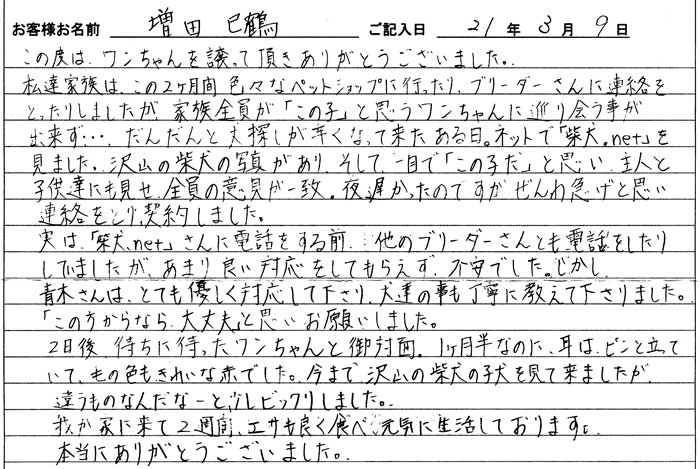 お客様お名前 増田 巳鶴 ご記入日 21 年 3 月 9 日
この度は、ワンちゃんを譲って頂きありがとうございました。
私達家族は、この2ヶ月間 色々なペットショップに行ったり、ブリーダーさんに連絡を
とったりしましたが、家族全員が「この子」と思うワンちゃんに巡り会う事が
出来ず…、だんだんと犬探しが辛くなって来た ある日。ネットで「柴犬.net」を
見ました。沢山の柴犬の写真があり、そして一目で「この子だ」と思い、主人と
子供達にも見せ、全員の意見が一致。夜遅かったのですが ぜんわ急げと思い
連絡をとり、契約しました。
実は、「柴犬.net」さんに電話をする前、他のブリーダーさんとも電話をしたり
していましたが、あまり良い対応をしてもらえず、不安でした。しかし、
青木さんは、とても優しく対応して下さり、犬達の事も丁寧に教えて下さりました。
「この方からなら、大丈夫」と思い お願いしました。
2日後、待ちに待ったワンちゃんと御対面。1ヶ月半なのに、耳は、ピンと立って
いて、もの色もきれいな赤でした。今まで、沢山の柴犬の子犬を見て来ましたが、
違うものなんだなーと少しビックリしました。
我が家に来て2週間、エサも良く食べ 元気に生活しております。
本当にありがとうございました。